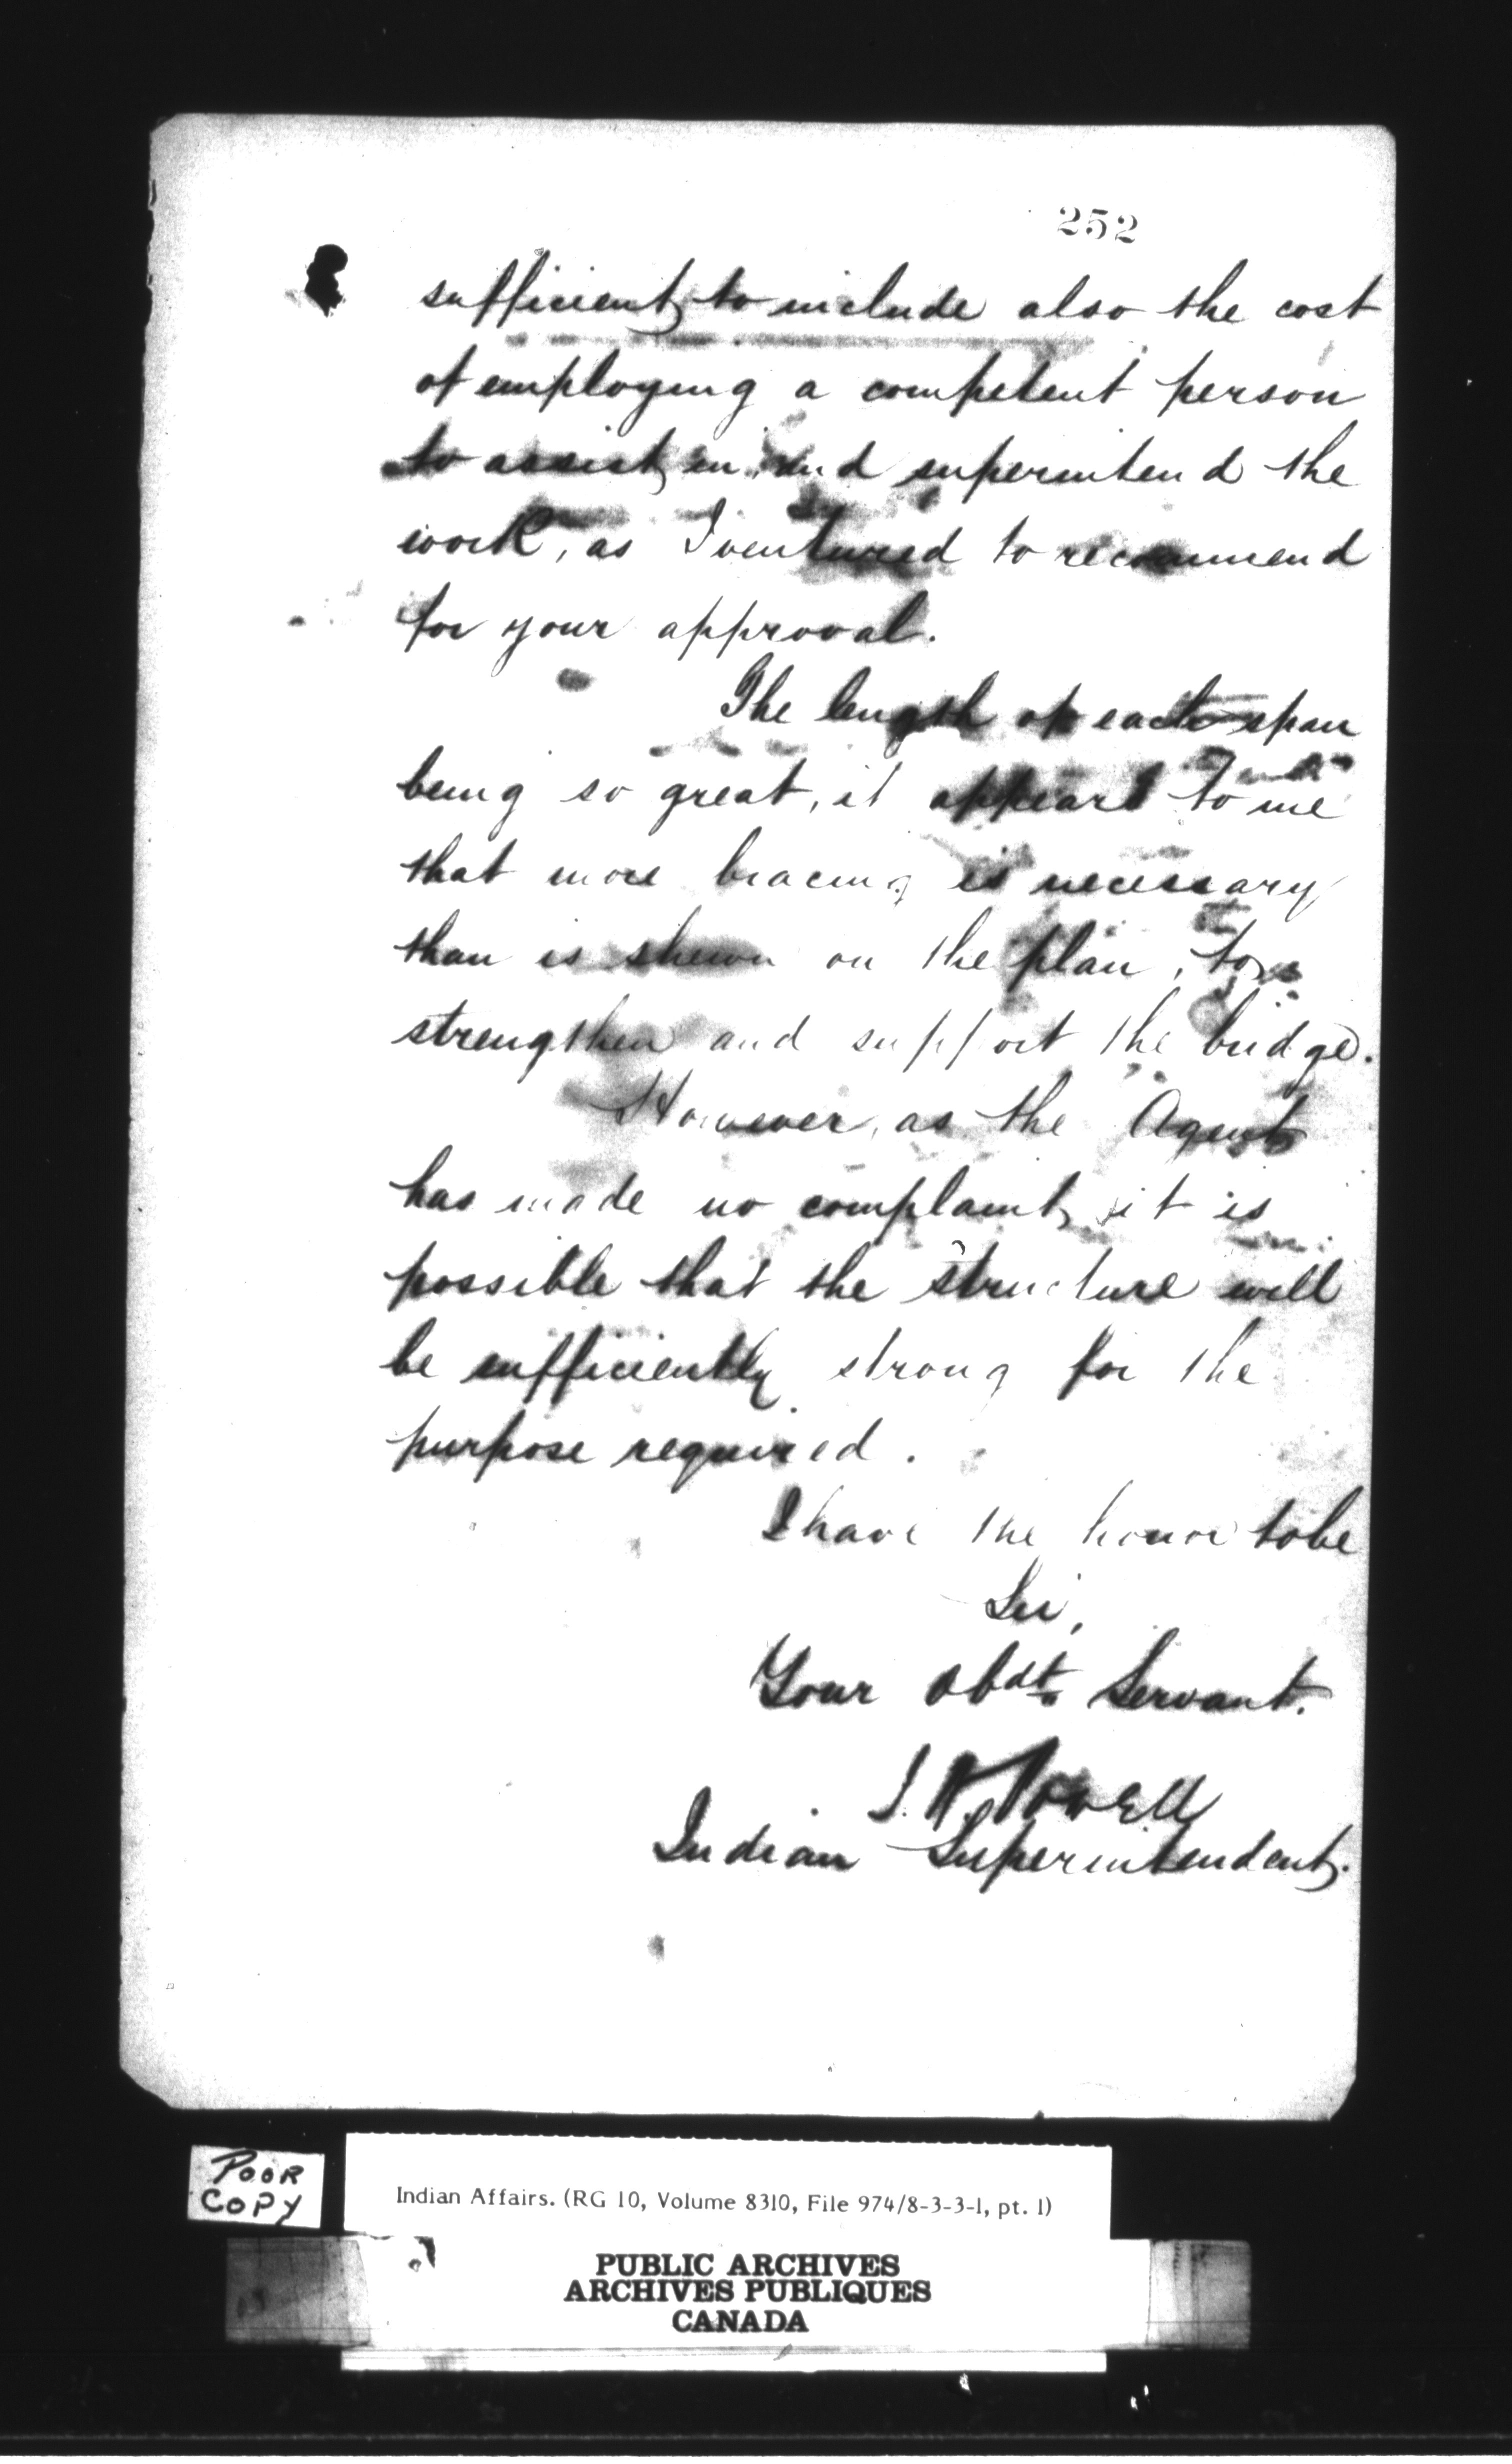 252
sufficient to include also the cost
of employing a competent person
to assist in, and superintend the
work, as I ventured to recommend
for your approval.
The length of each span
being so great, it appears to me
that more bracing is necessary
than is shewn on the plan, to
strengthen and support the bridge.
However, as the Agent
has made no complaint, it is
possible that the structure will
be sufficiently strong for the
purpose required.
I have the honor to be
Sir,
Your obdt Servant.
I. W. Powell
Indian Superintendent.
POOR
COPY
Indian Affairs. (RG 10, Volume 8310, File 974/8-3-3-1, pt. 1)
PUBLIC ARCHIVES
ARCHIVES PUBLIQUES
CANADA